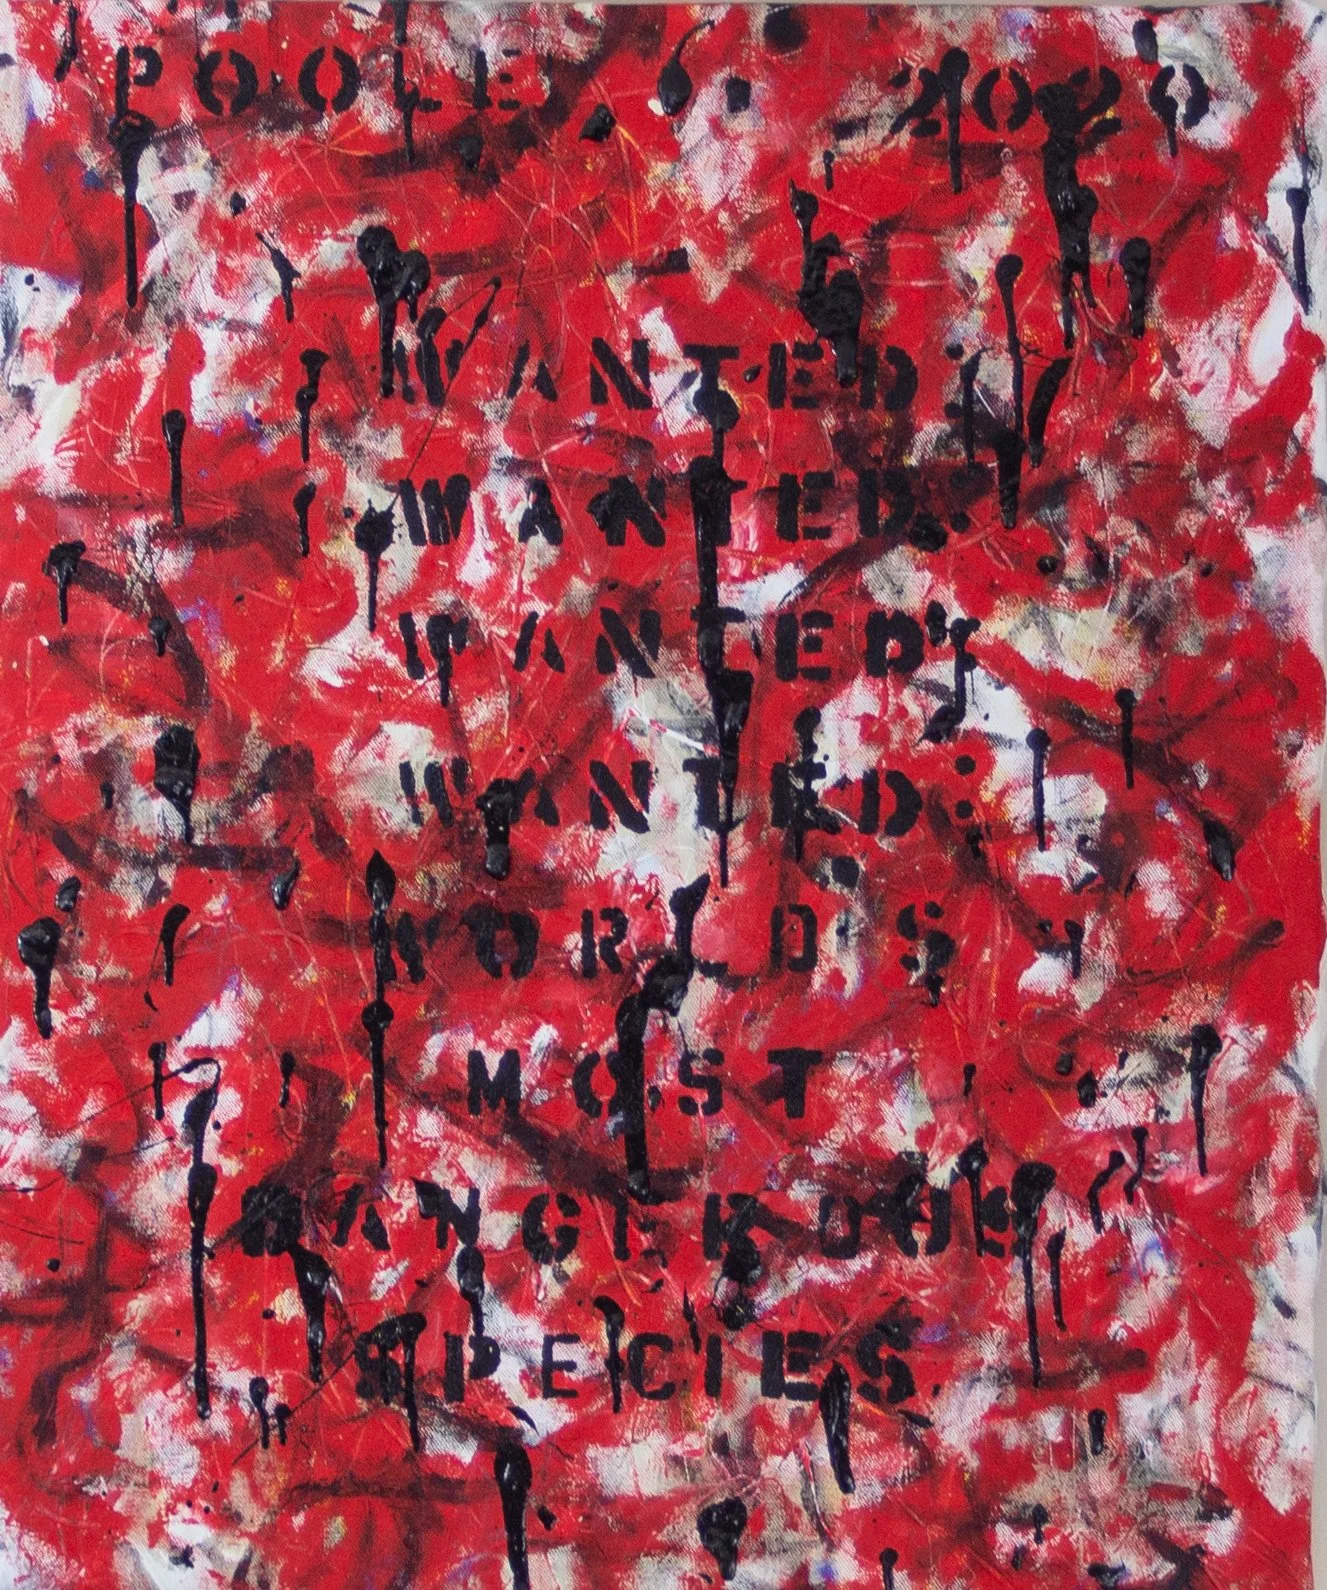 POOLE 2020
WANTED:
WANTED:
WANTED:
WANTED:
WORLDS
MOST
DANGEROUS
SPECIES